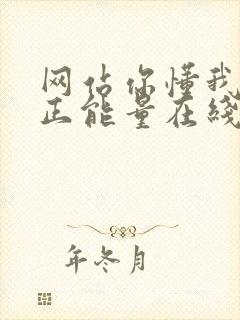 网站你懂我
正能量在线
年冬月